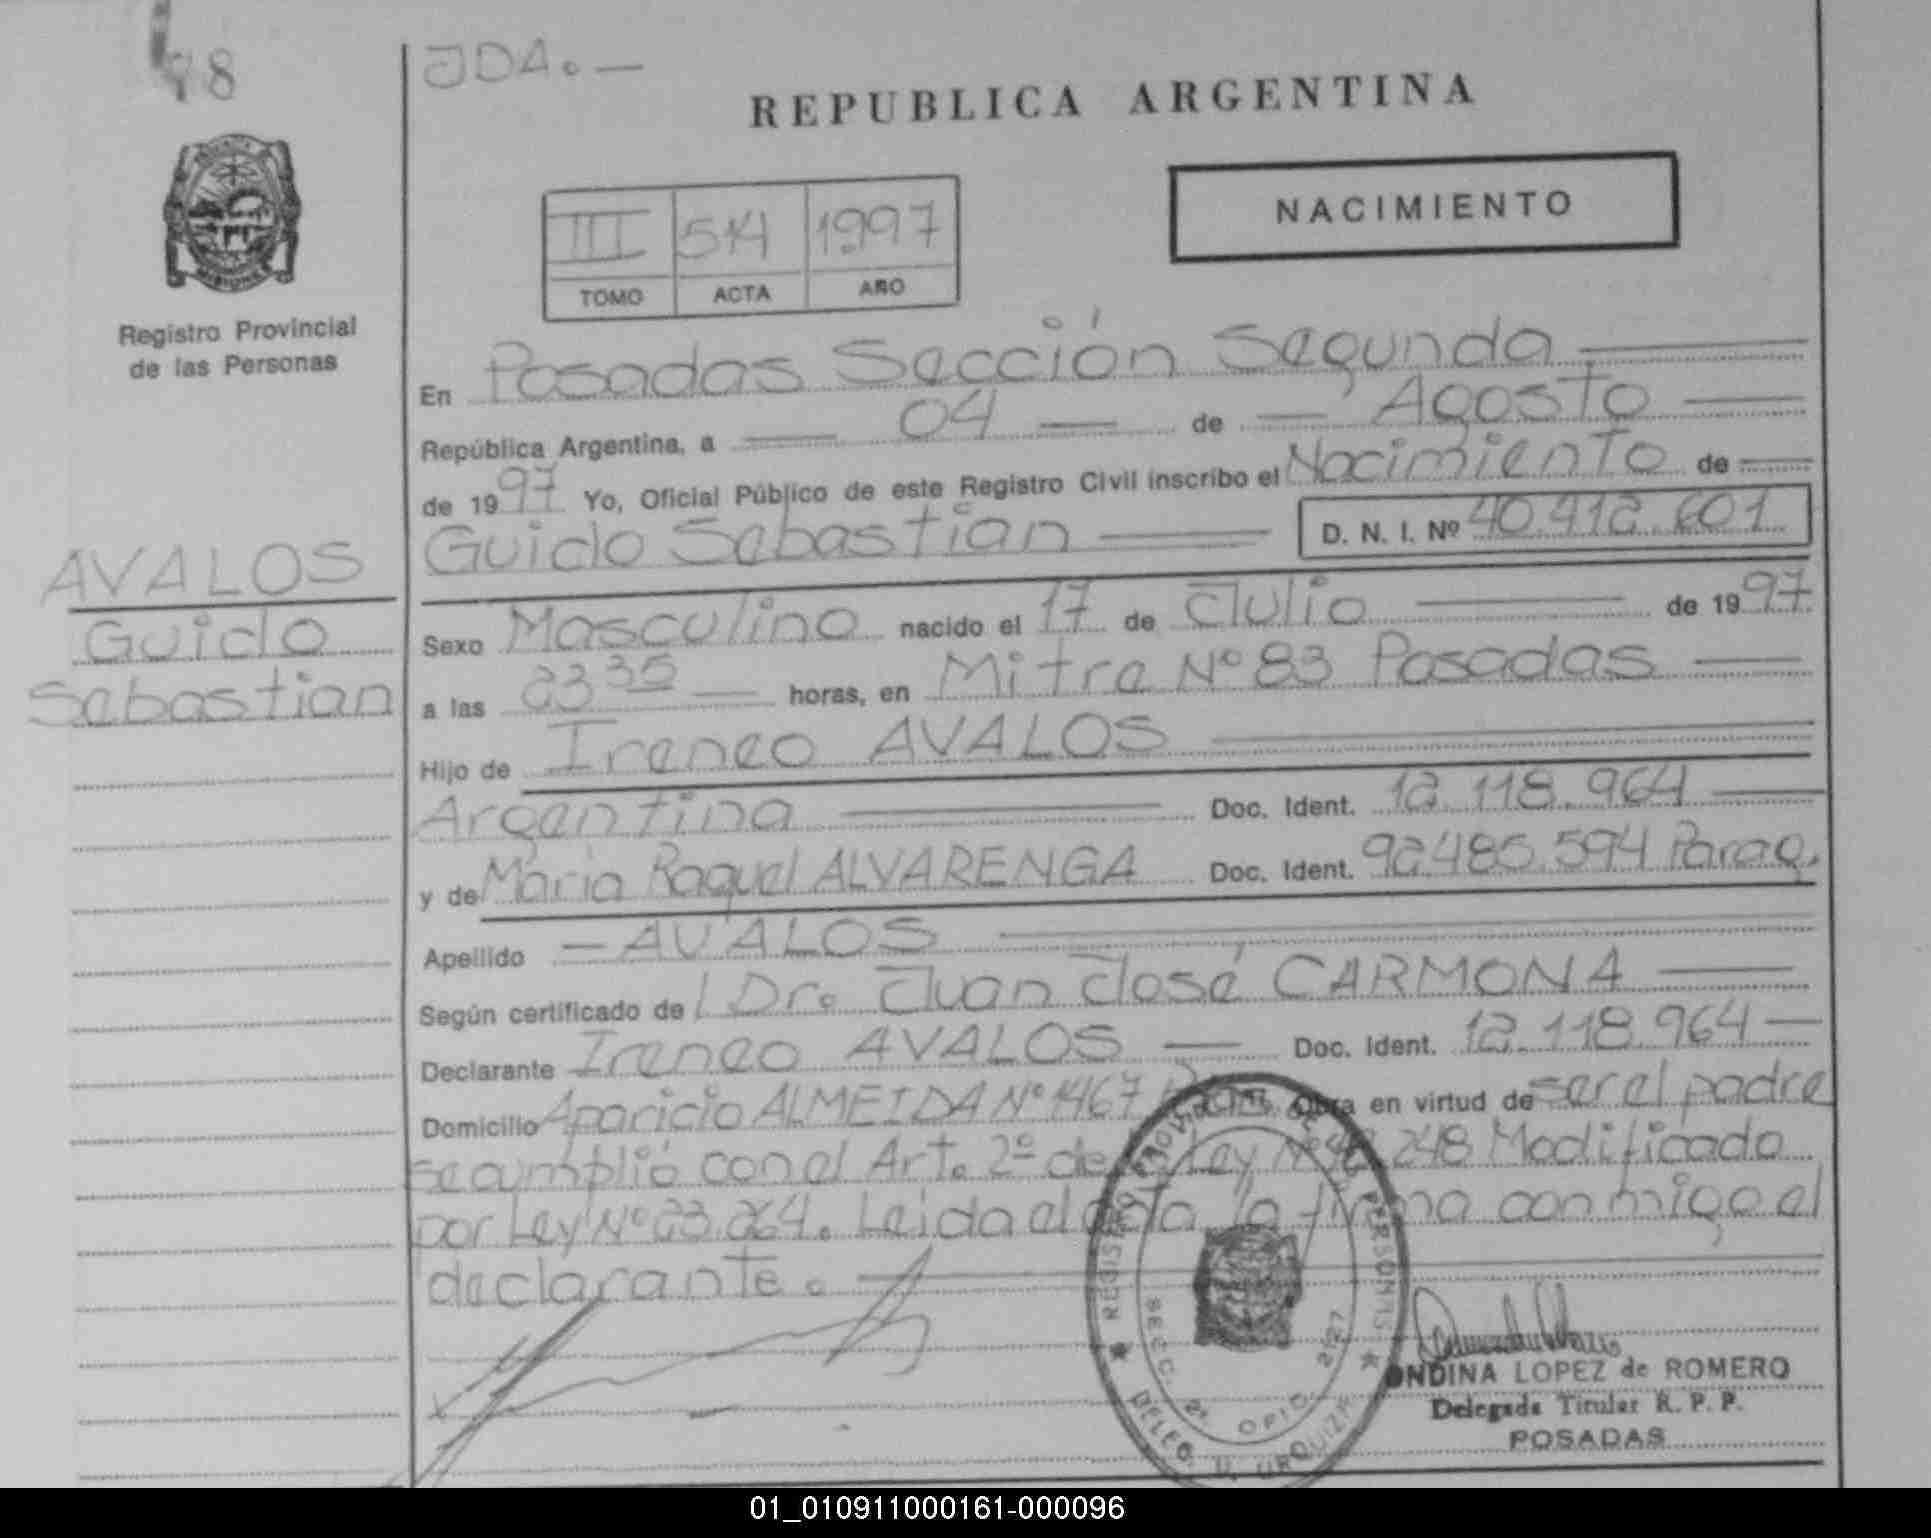 98
JDA. —
REPUBLICA ARGENTINA
NACIMIENTO
III 514 1997
TOMO ACTA AÑO
Registro Provincial
de las Personas
En Posadas Sección Segunda
República Argentina, a 04 de Agosto
de 1997 Yo, Oficial Público de este Registro Civil inscribo el Nacimiento de
Guido Sebastian D. N. I. Nº 40.412.601
AVALOS
Guido
Sebastian
Sexo Masculino nacido el 17 de Julio de 1997
a las 23 35 horas, en Mitre Nº 83 Posadas
Hijo de Ireneo AVALOS
Argentina Doc. Ident. 12.118.964
y de Maria Raquel ALVARENGA Doc. Ident. 92.485.594 Parag.
Apellido — AVALOS
Según certificado de l Dr. Juan José CARMONA
Declarante Ireneo AVALOS Doc. Ident. 12.118.964
Domicilio Aparicio ALMEIDA Nº 1467 Obra en virtud de ser el padre
se cumplió con el Art. 2º de la Ley Nº 18.248 Modificado
por Ley Nº 23.264. Leida el acta la firma conmigo el
declarante.
REGISTRO PROVINCIAL DE LAS PERSONAS
SECC. 2ª OFIC. 2127
DELEG. U. URQUIZA
ONDINA LOPEZ de ROMERO
Delegada Titular R. P. P.
POSADAS
01_010911000161-000096